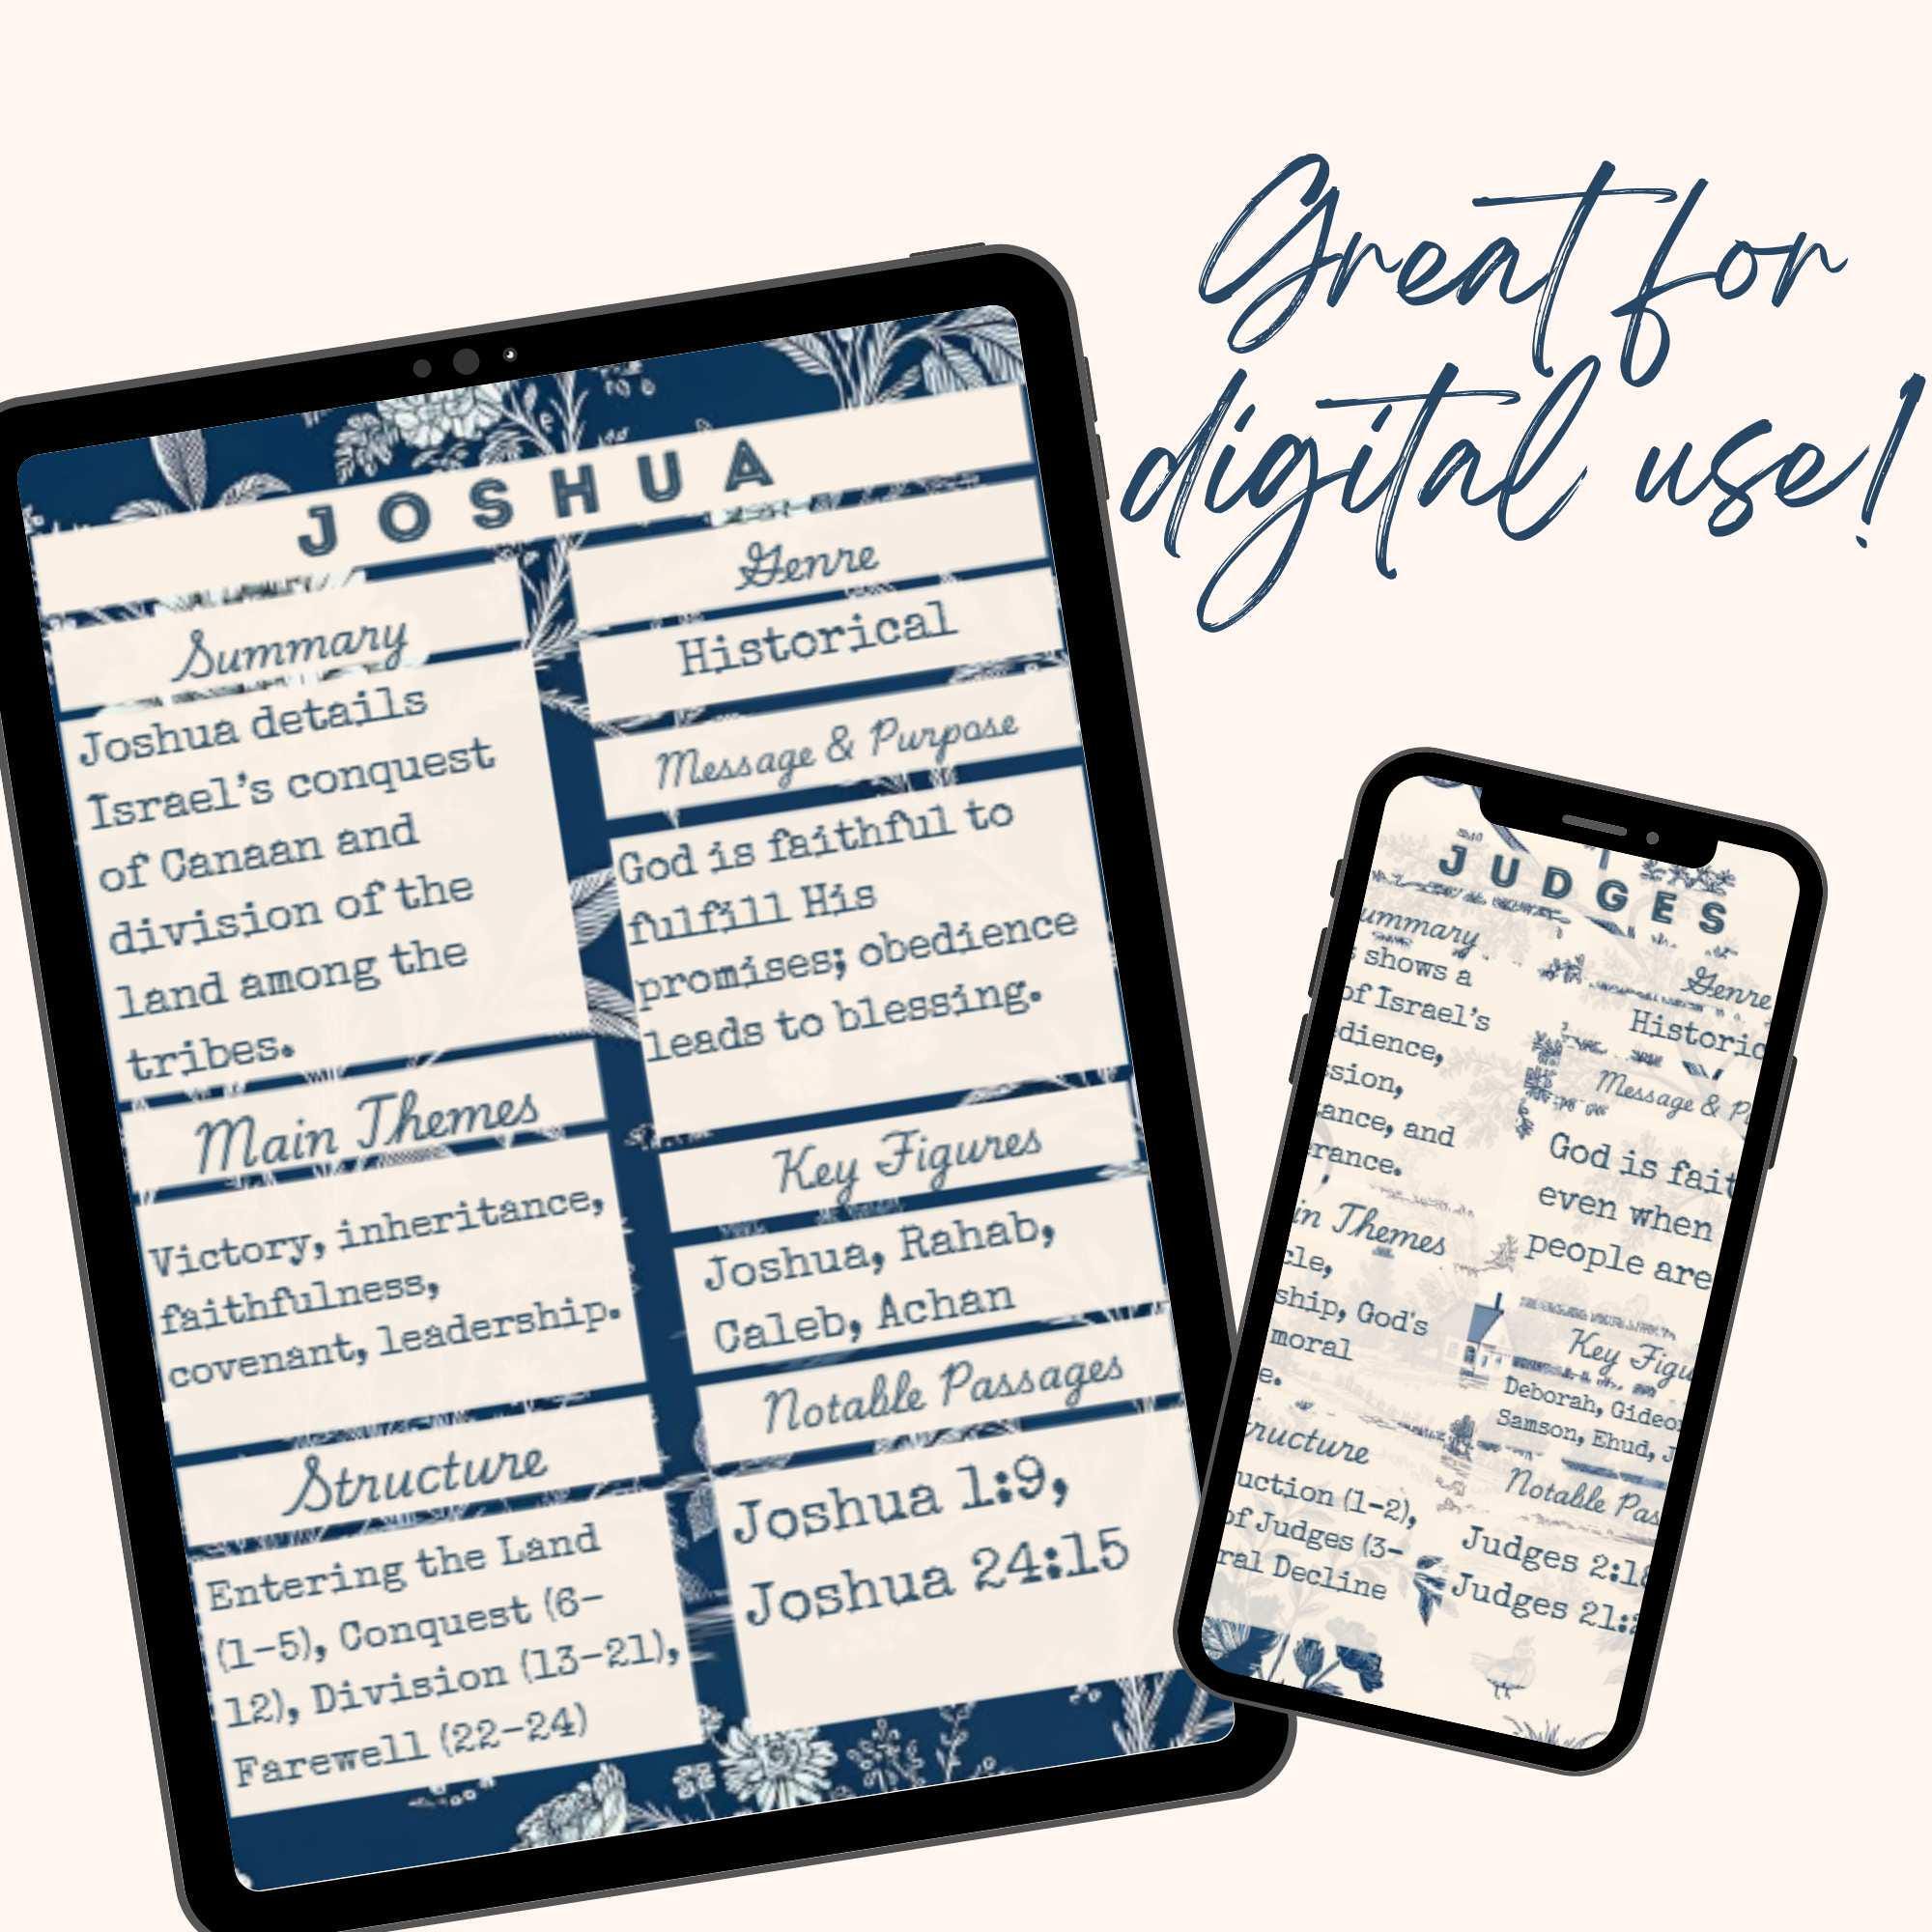 Great for
digital use!
JOSHUA
Summary
Joshua details
Israel's conquest
of Canaan and
division of the
land among the
tribes.
Main Themes
Victory, inheritance,
faithfulness,
covenant, leadership.
Structure
Entering the Land
(1-5), Conquest (6-
12), Division (13-21),
Farewell (22-24)
Genre
Historical
Message & Purpose
God is faithful to
fulfill His
promises; obedience
leads to blessing.
Key Figures
Joshua, Rahab,
Caleb, Achan
Notable Passages
Joshua 1:9,
Joshua 24:15
JUDGES
ummary
shows a
of Israel's
dience,
sion,
ance, and
rance.
in Themes
cle,
ship, God's
moral
e.
ructure
uction (1-2),
of Judges (3-
ral Decline
Genre
Historic
Message & P
God is fait
even when
people are
Key Figu
Deborah, Gideon
Samson, Ehud, J
Notable Pas
Judges 2:1
Judges 21: